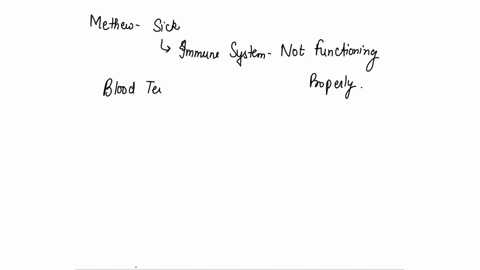 Methew- Sick
↳ Immune System- Not functioning
Properly.
Blood Te